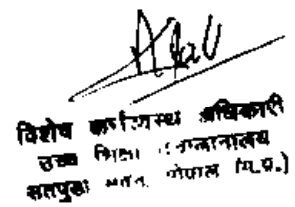 विशेष कर्त्तव्यस्थ अधिकारी
उच्च शिक्षा
सतपुड़ा भवन, भोपाल (म.प्र.)